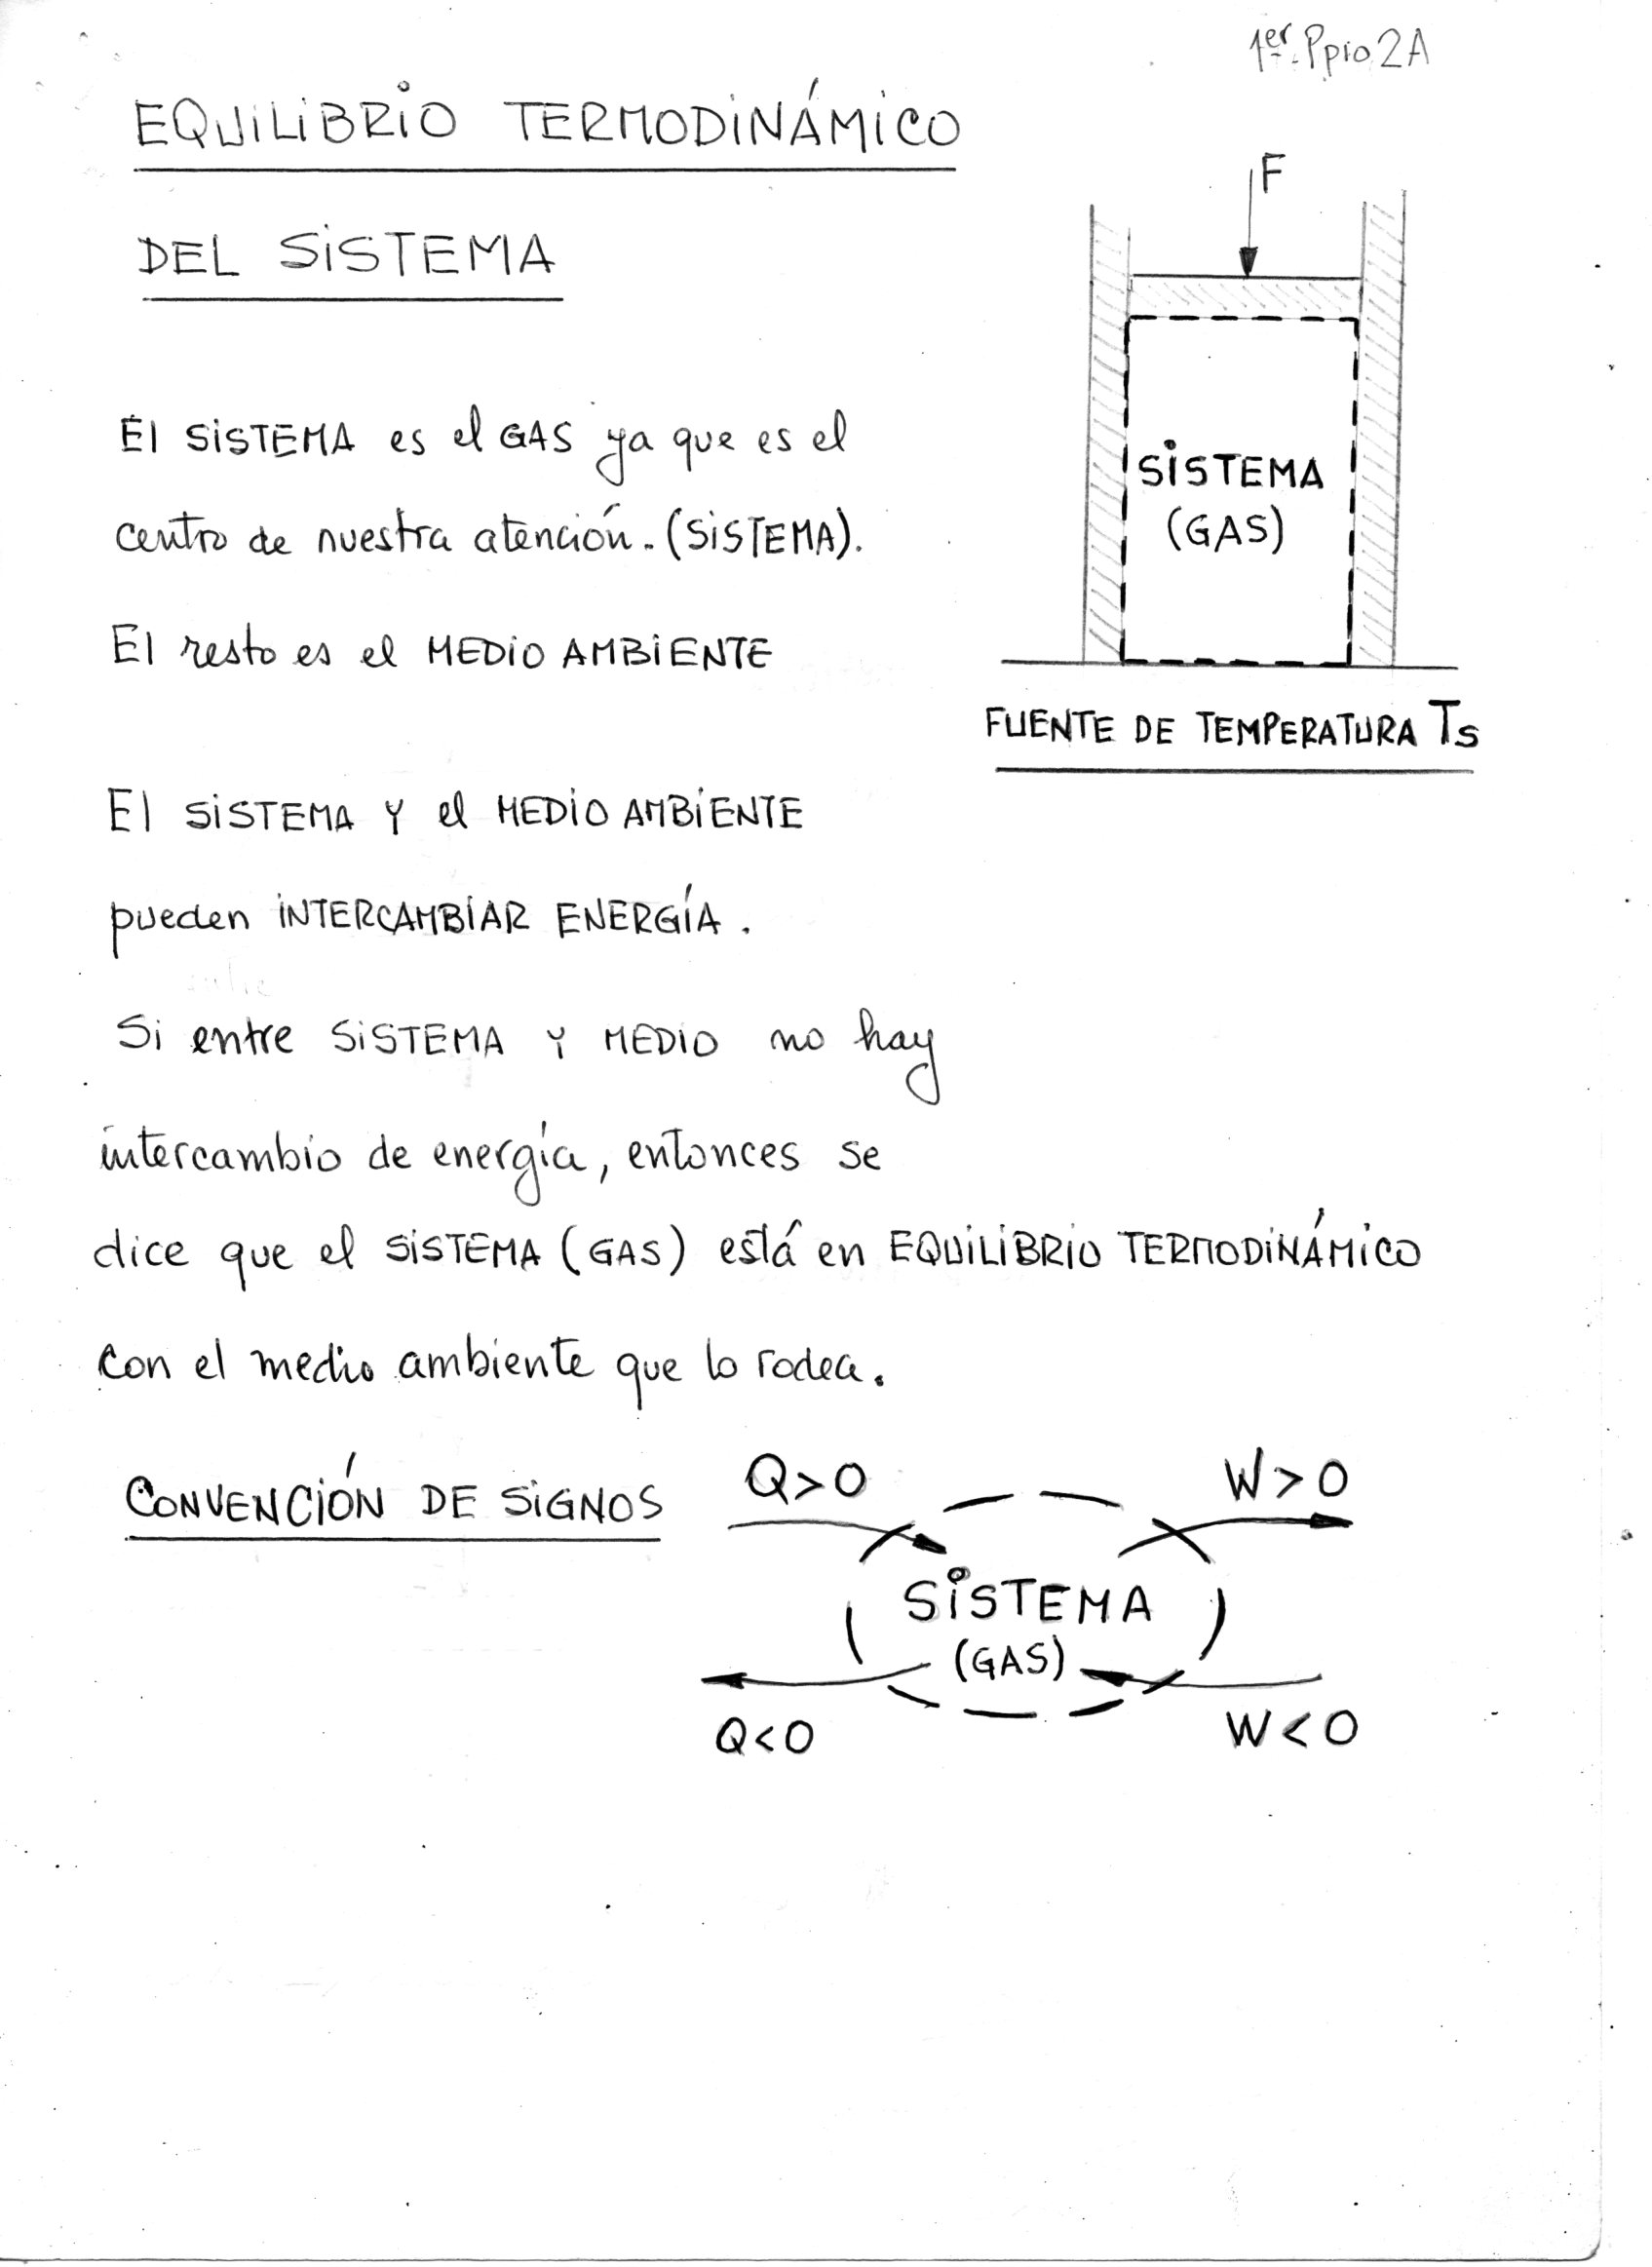 1er. Ppio 2A
EQUILIBRIO TERMODINÁMICO
DEL SISTEMA
F
SISTEMA
(GAS)
FUENTE DE TEMPERATURA Ts
El SISTEMA es el GAS ya que es el
centro de nuestra atención. (SISTEMA).
El resto es el MEDIO AMBIENTE
El SISTEMA Y el MEDIO AMBIENTE
pueden INTERCAMBIAR ENERGÍA.
Si entre SISTEMA Y MEDIO no hay
intercambio de energía, entonces se
dice que el SISTEMA (GAS) está en EQUILIBRIO TERMODINÁMICO
con el medio ambiente que lo rodea.
CONVENCIÓN DE SIGNOS
Q>0
W>0
SISTEMA
(GAS)
Q<0
W<0